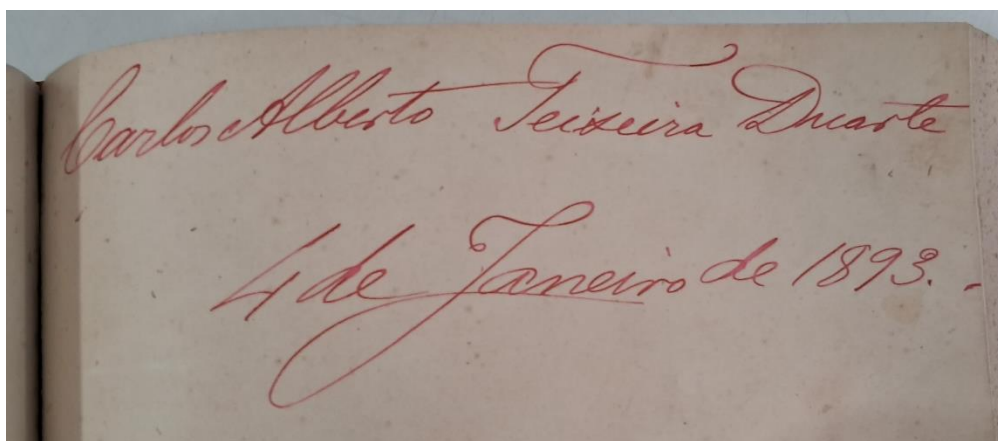 Carlos Alberto Teixeira Duarte
4 de Janeiro de 1893. -